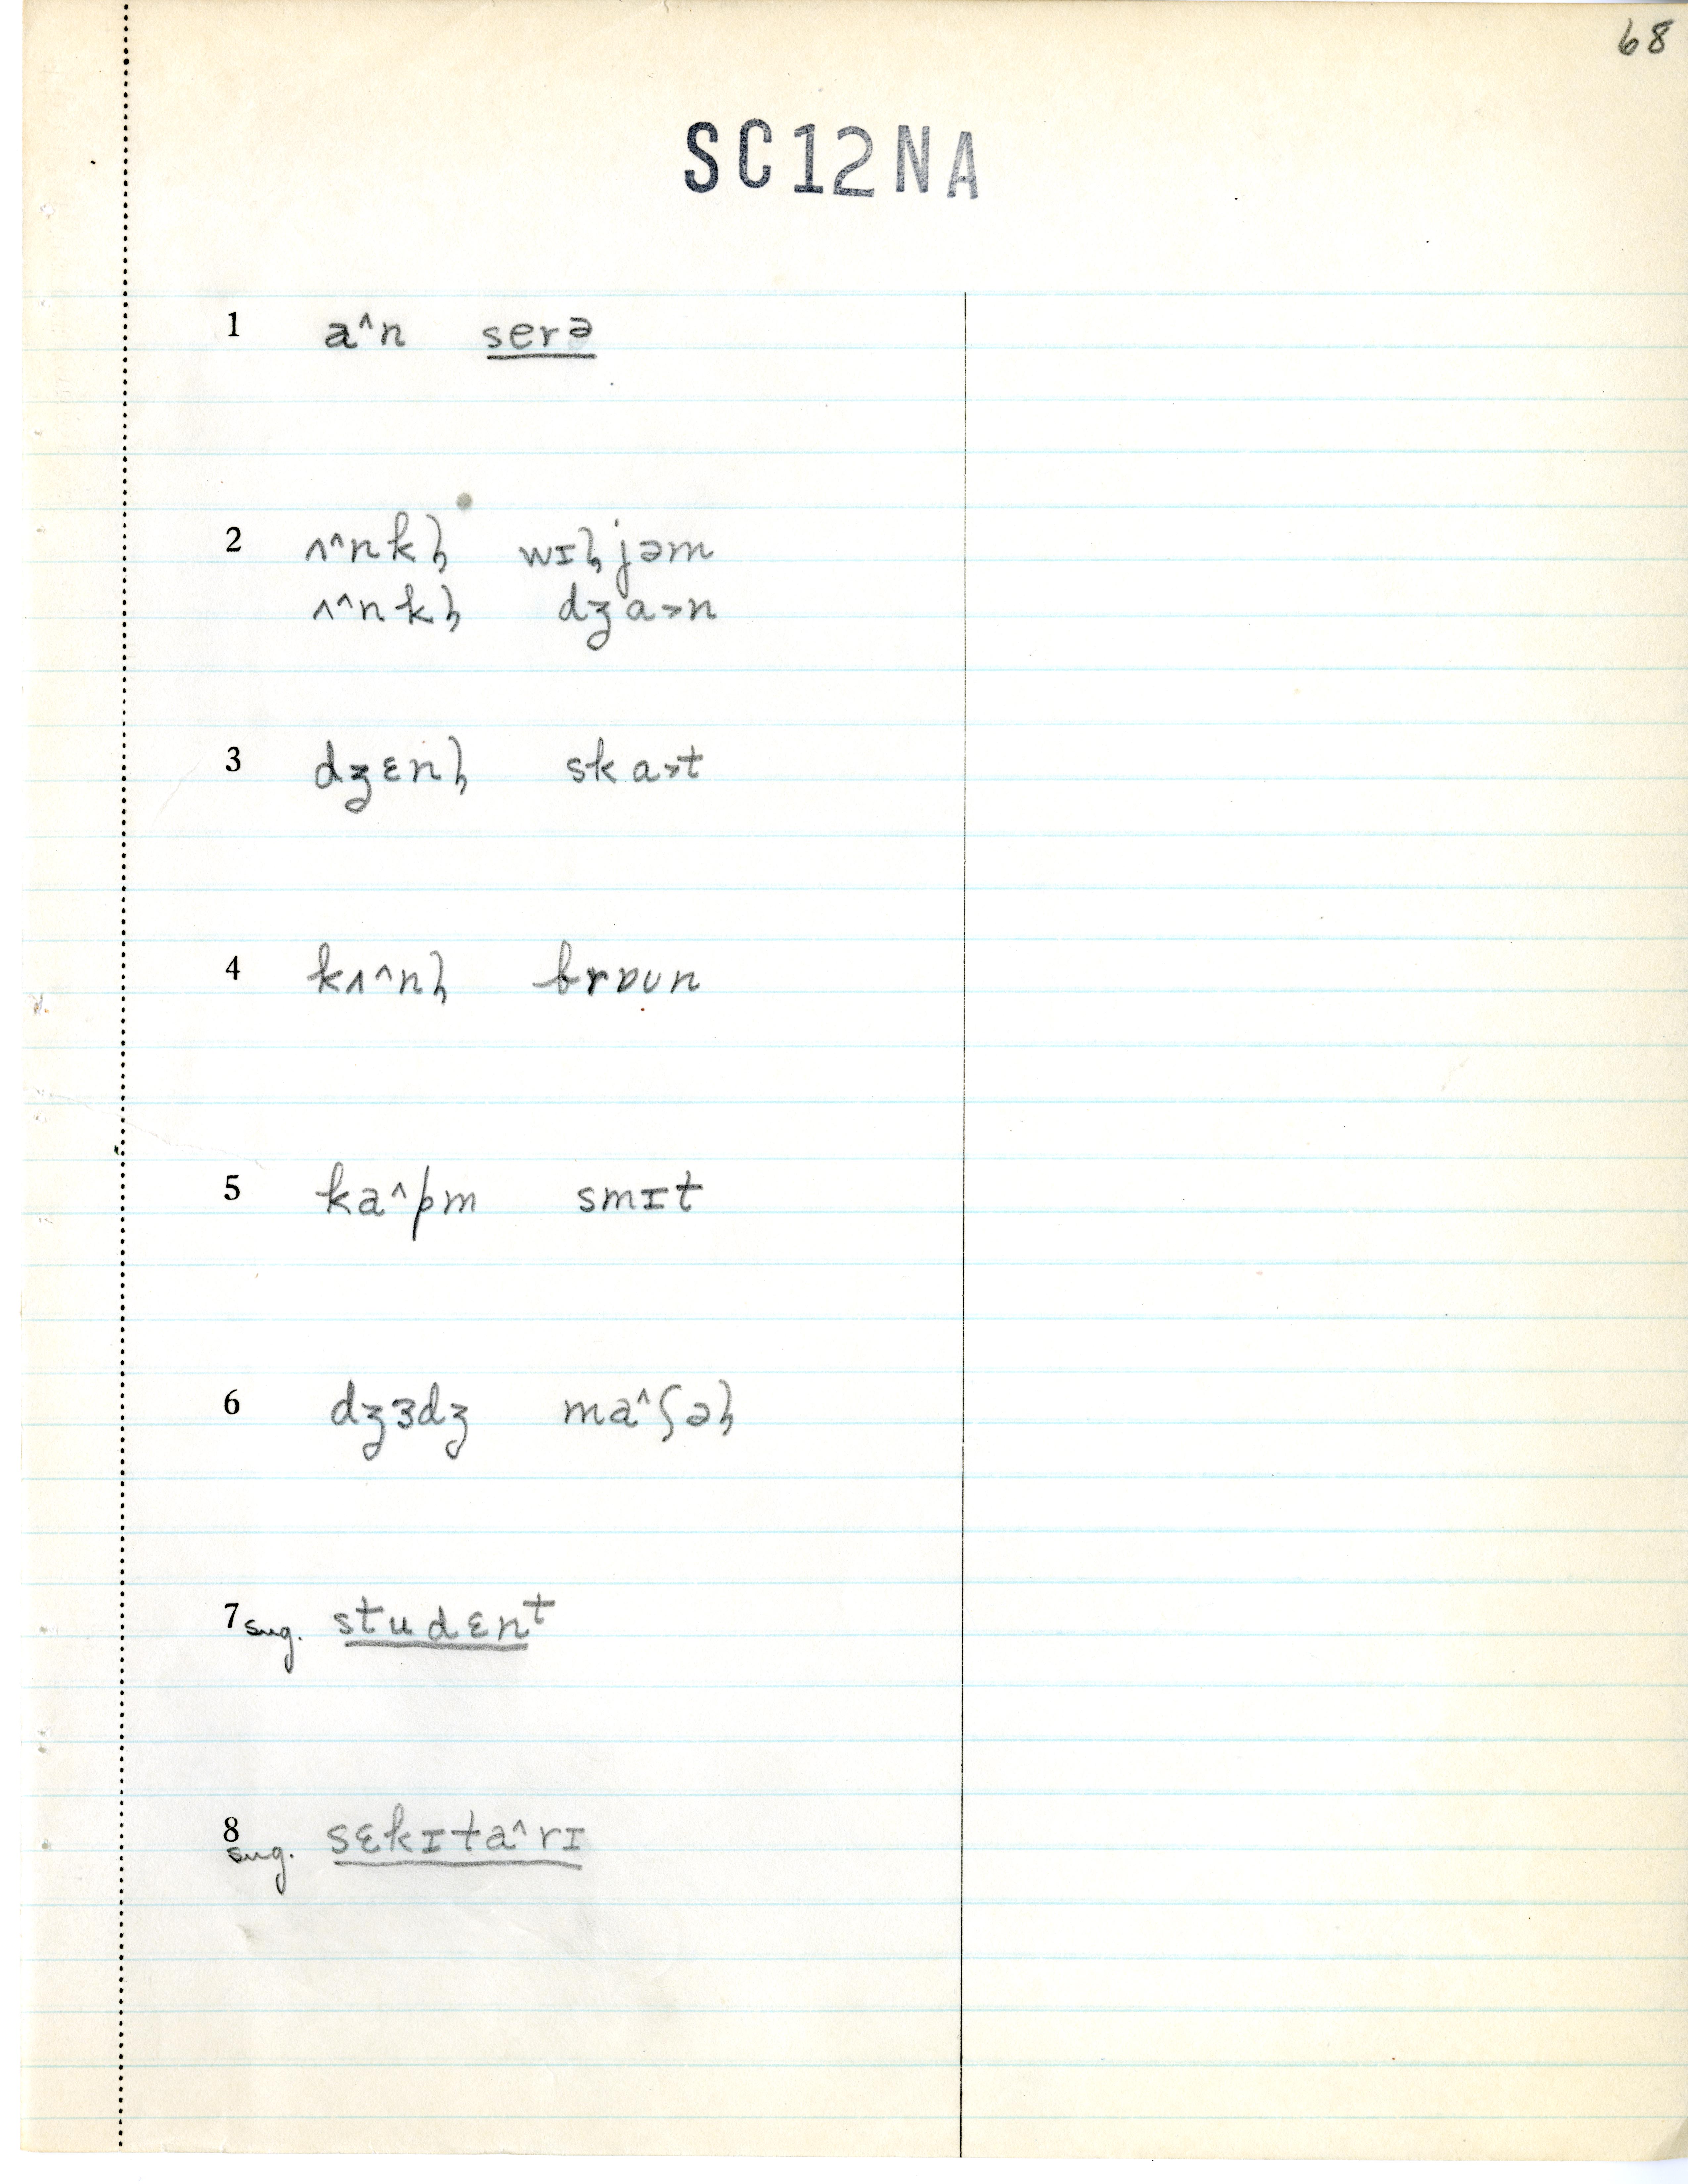 68
SC12NA
1 a^n serə
2 ʌ^nkɫ̩ wɪɫjəm
ʌ^nkɫ̩ dʒa>n
3 dʒɛnɫ̩ ska>t
4 kʌ^nɫ̩ brɒun
5 ka^pm smɪt
6 dʒɜdʒ ma^ʃəɫ
7 sug. studɛnᵗ
8 sug. sɛkɪta^rɪ